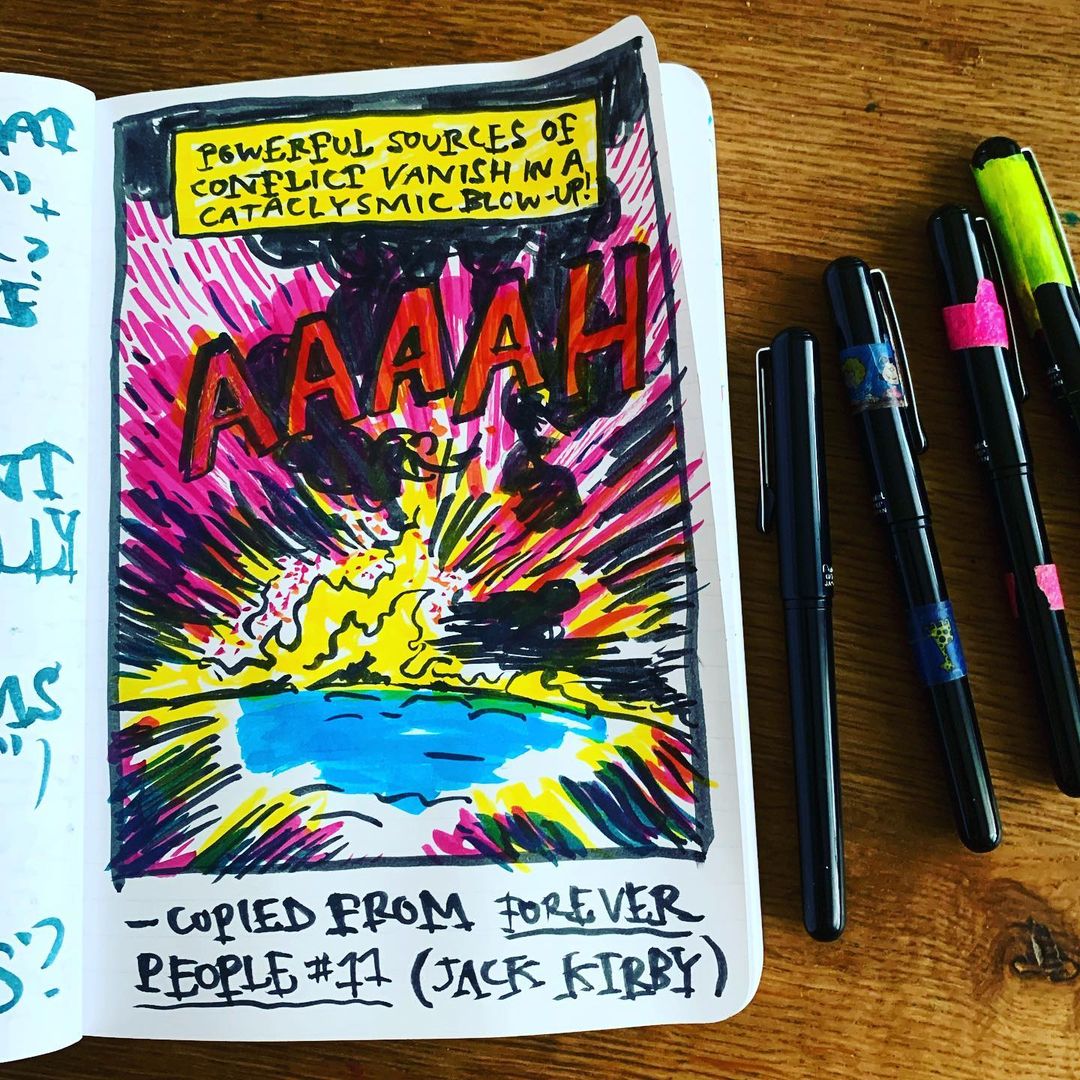 POWERFUL SOURCES OF
CONFLICT VANISH IN A
CATACLYSMIC BLOW-UP!
AAAAH
- COPIED FROM FOREVER
PEOPLE #11 (JACK KIRBY)